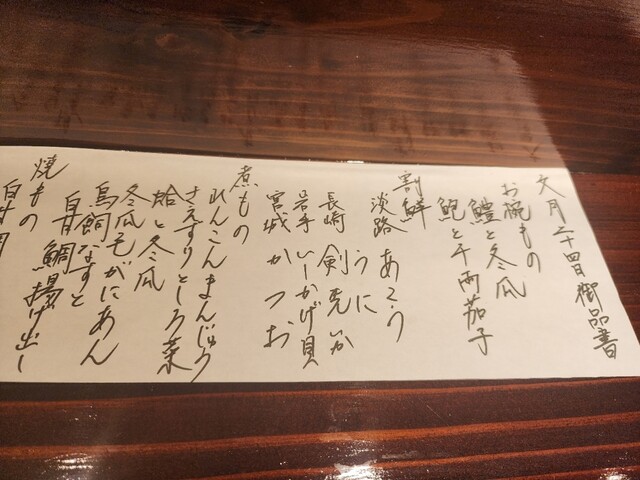 文月二十四日御品書
お椀もの
鱧と冬瓜
鮑と千両茄子
割鮮
淡路 あこう
うに
長崎 剣先いか
岩手 いしかげ貝
宮城 かつお
煮もの
れんこんまんじゅう
さえずりとしろ菜
蛤と冬瓜
冬瓜毛がにあん
鳥飼なすと
白甘鯛揚げ出し
焼もの
白甘鯛